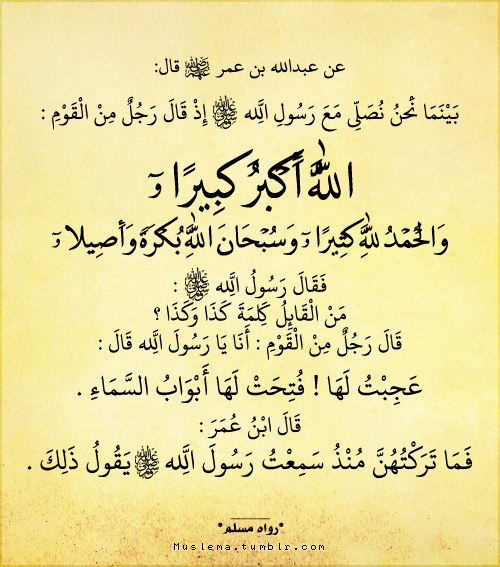 عن عبدالله بن عمر ﵁ قال:
بَيْنَمَا نَحْنُ نُصَلِّى مَعَ رَسُولِ اللَّهِ ﷺ إِذْ قَالَ رَجُلٌ مِنَ الْقَوْمِ :
اللَّهُ أَكْبَرُ كَبِيرًا
وَالْحَمْدُ لِلَّهِ كَثِيرًا وَسُبْحَانَ اللَّهِ بُكْرَةً وَأَصِيلًا
فَقَالَ رَسُولُ اللَّهِ ﷺ :
مَنْ الْقَائِلُ كَلِمَةَ كَذَا وَكَذَا ؟
قَالَ رَجُلٌ مِنَ الْقَوْمِ : أَنَا يَا رَسُولَ اللَّهِ قَالَ :
عَجِبْتُ لَهَا ! فُتِحَتْ لَهَا أَبْوَابُ السَّمَاءِ .
قَالَ ابْنُ عُمَرَ :
فَمَا تَرَكْتُهُنَّ مُنْذُ سَمِعْتُ رَسُولَ اللَّهِ ﷺ يَقُولُ ذَلِكَ .
*رواه مسلم*
Muslema.tumblr.com